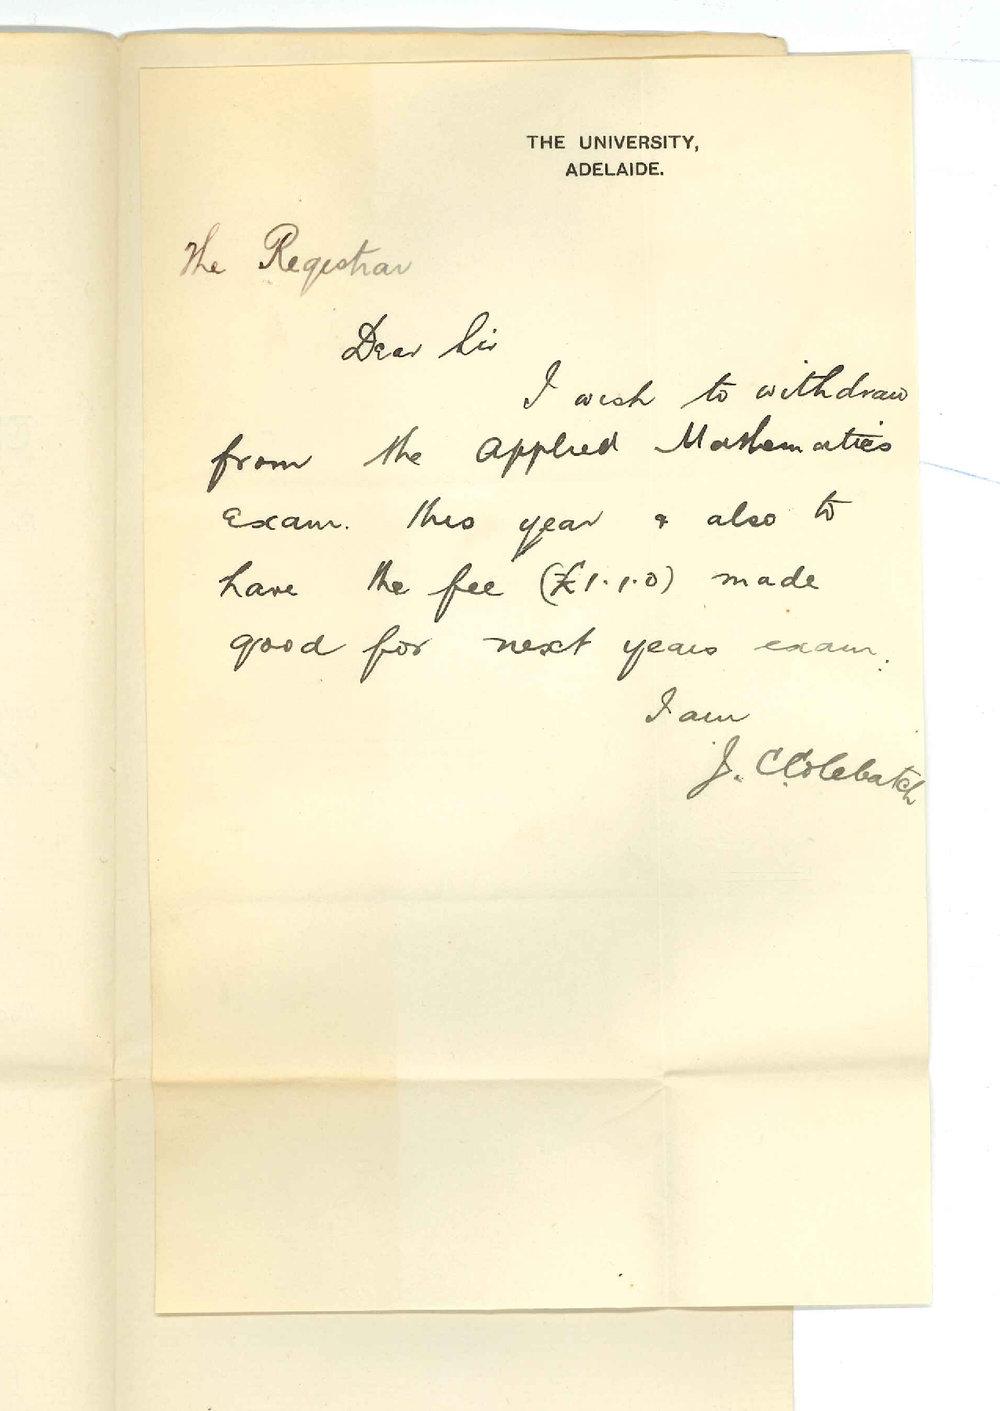 THE UNIVERSITY,
ADELAIDE.
The Registrar
Dear Sir
I wish to withdraw
from the Applied Mathematics
Exam. this year & also to
have the fee (£1.1.0) made
good for next years exam.
I am
J. C. Colebatch